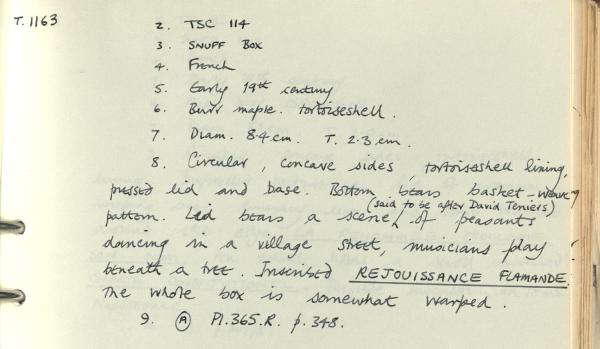 T. 1163
2. TSC 114
3. SNUFF BOX
4. French
5. Early 19th century
6. Burr maple. tortoiseshell.
7. Diam. 8.4 cm. T. 2.3 cm.
8. Circular, concave sides, tortoiseshell lining,
pressed lid and base. Bottom bears basket-weave
(said to be after David Teniers)
pattern. Lid bears a scene of peasants
dancing in a village street, musicians play
beneath a tree. Inscribed REJOUISSANCE FLAMANDE.
The whole box is somewhat warped.
9. A Pl. 365. R. p. 348.